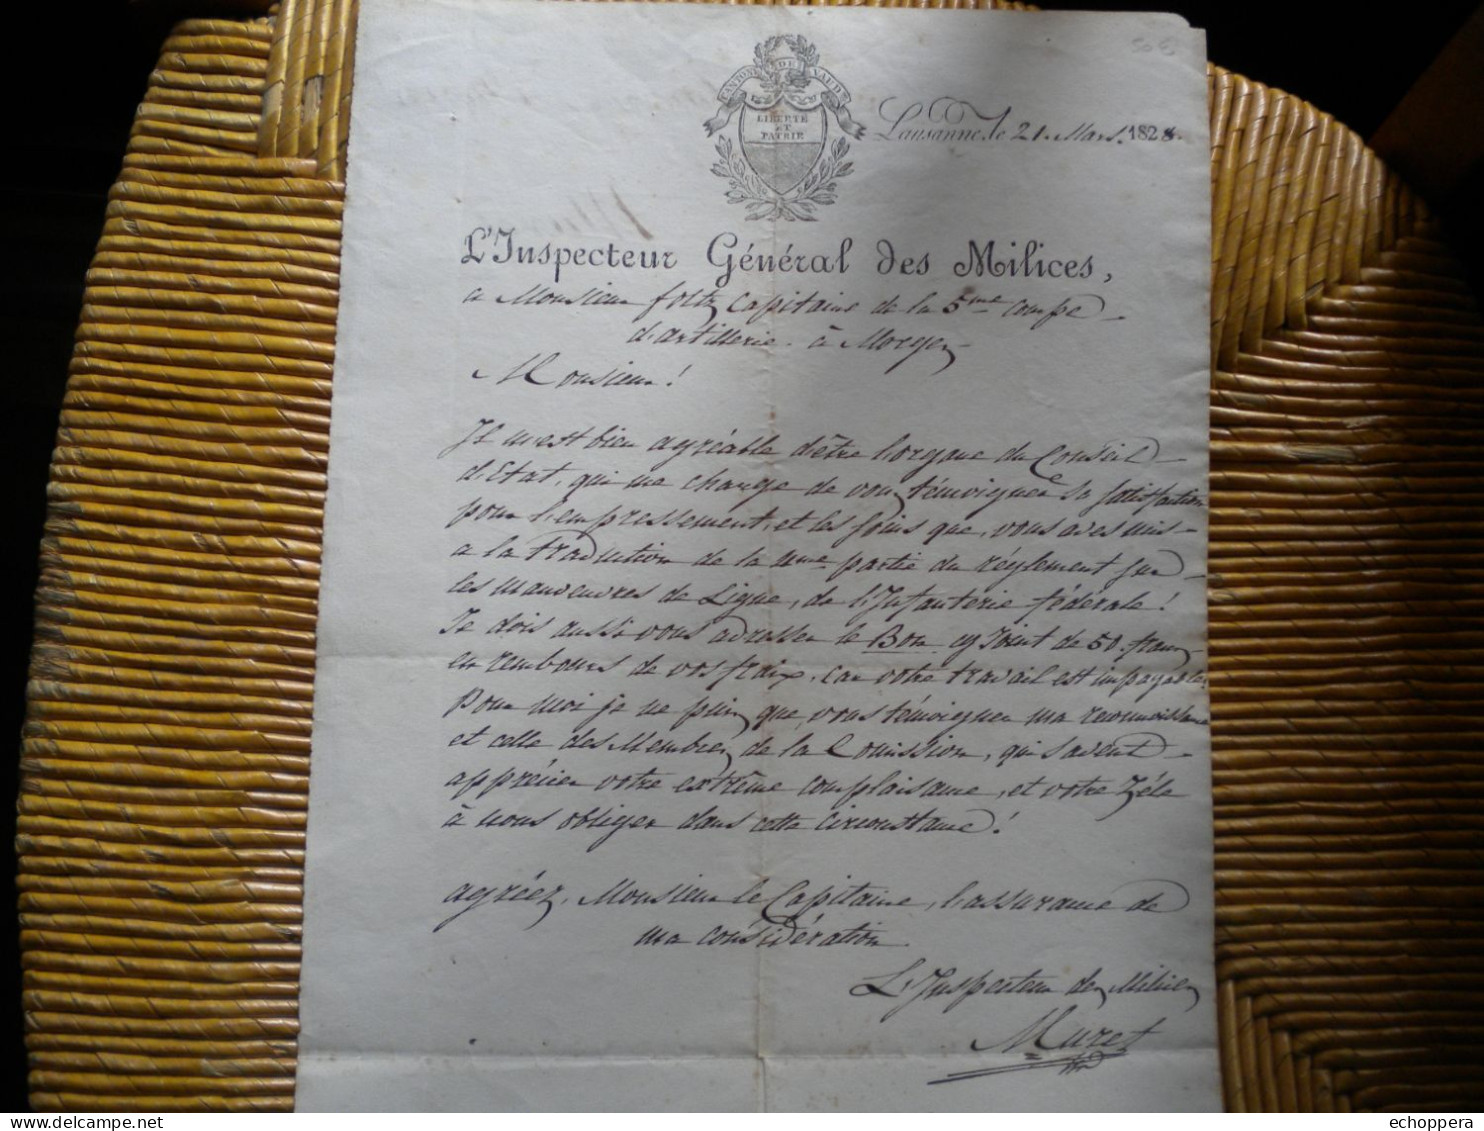 50 €
CANTON DE VAUD
LIBERTÉ
ET
PATRIE
Lausanne, le 21. Mars. 1828.
L'Inspecteur Général des Milices,
a Monsieur foltz Capitaine de la 5me compe
d'artillerie. à Morges
Monsieur!
Il m'est bien agréable d'être l'organe du Conseil
d'Etat, qui me charge de vous témoigner sa satisfaction
pour l'empressement, et les soins que, vous avez mis
a la traduction de la partie du réglement sur
les manoeuvres de Ligne, de l'Infanterie fédérale!
Je dois aussi vous adresser le Bon cy Joint de 50. francs
en rembours de vos fraix, car votre travail est impayable
Pour moi je ne puis que, vous témoigner ma reconnoissance
et celle des Membres de la Comission, qui savent
apprécier votre extrême complaisance, et votre Zéle
à nous obliger dans cette circonstance!
agréez, Monsieur le Capitaine, l'assurance de
ma considération.
L'Inspecteur des Milices
Muret
echoppera